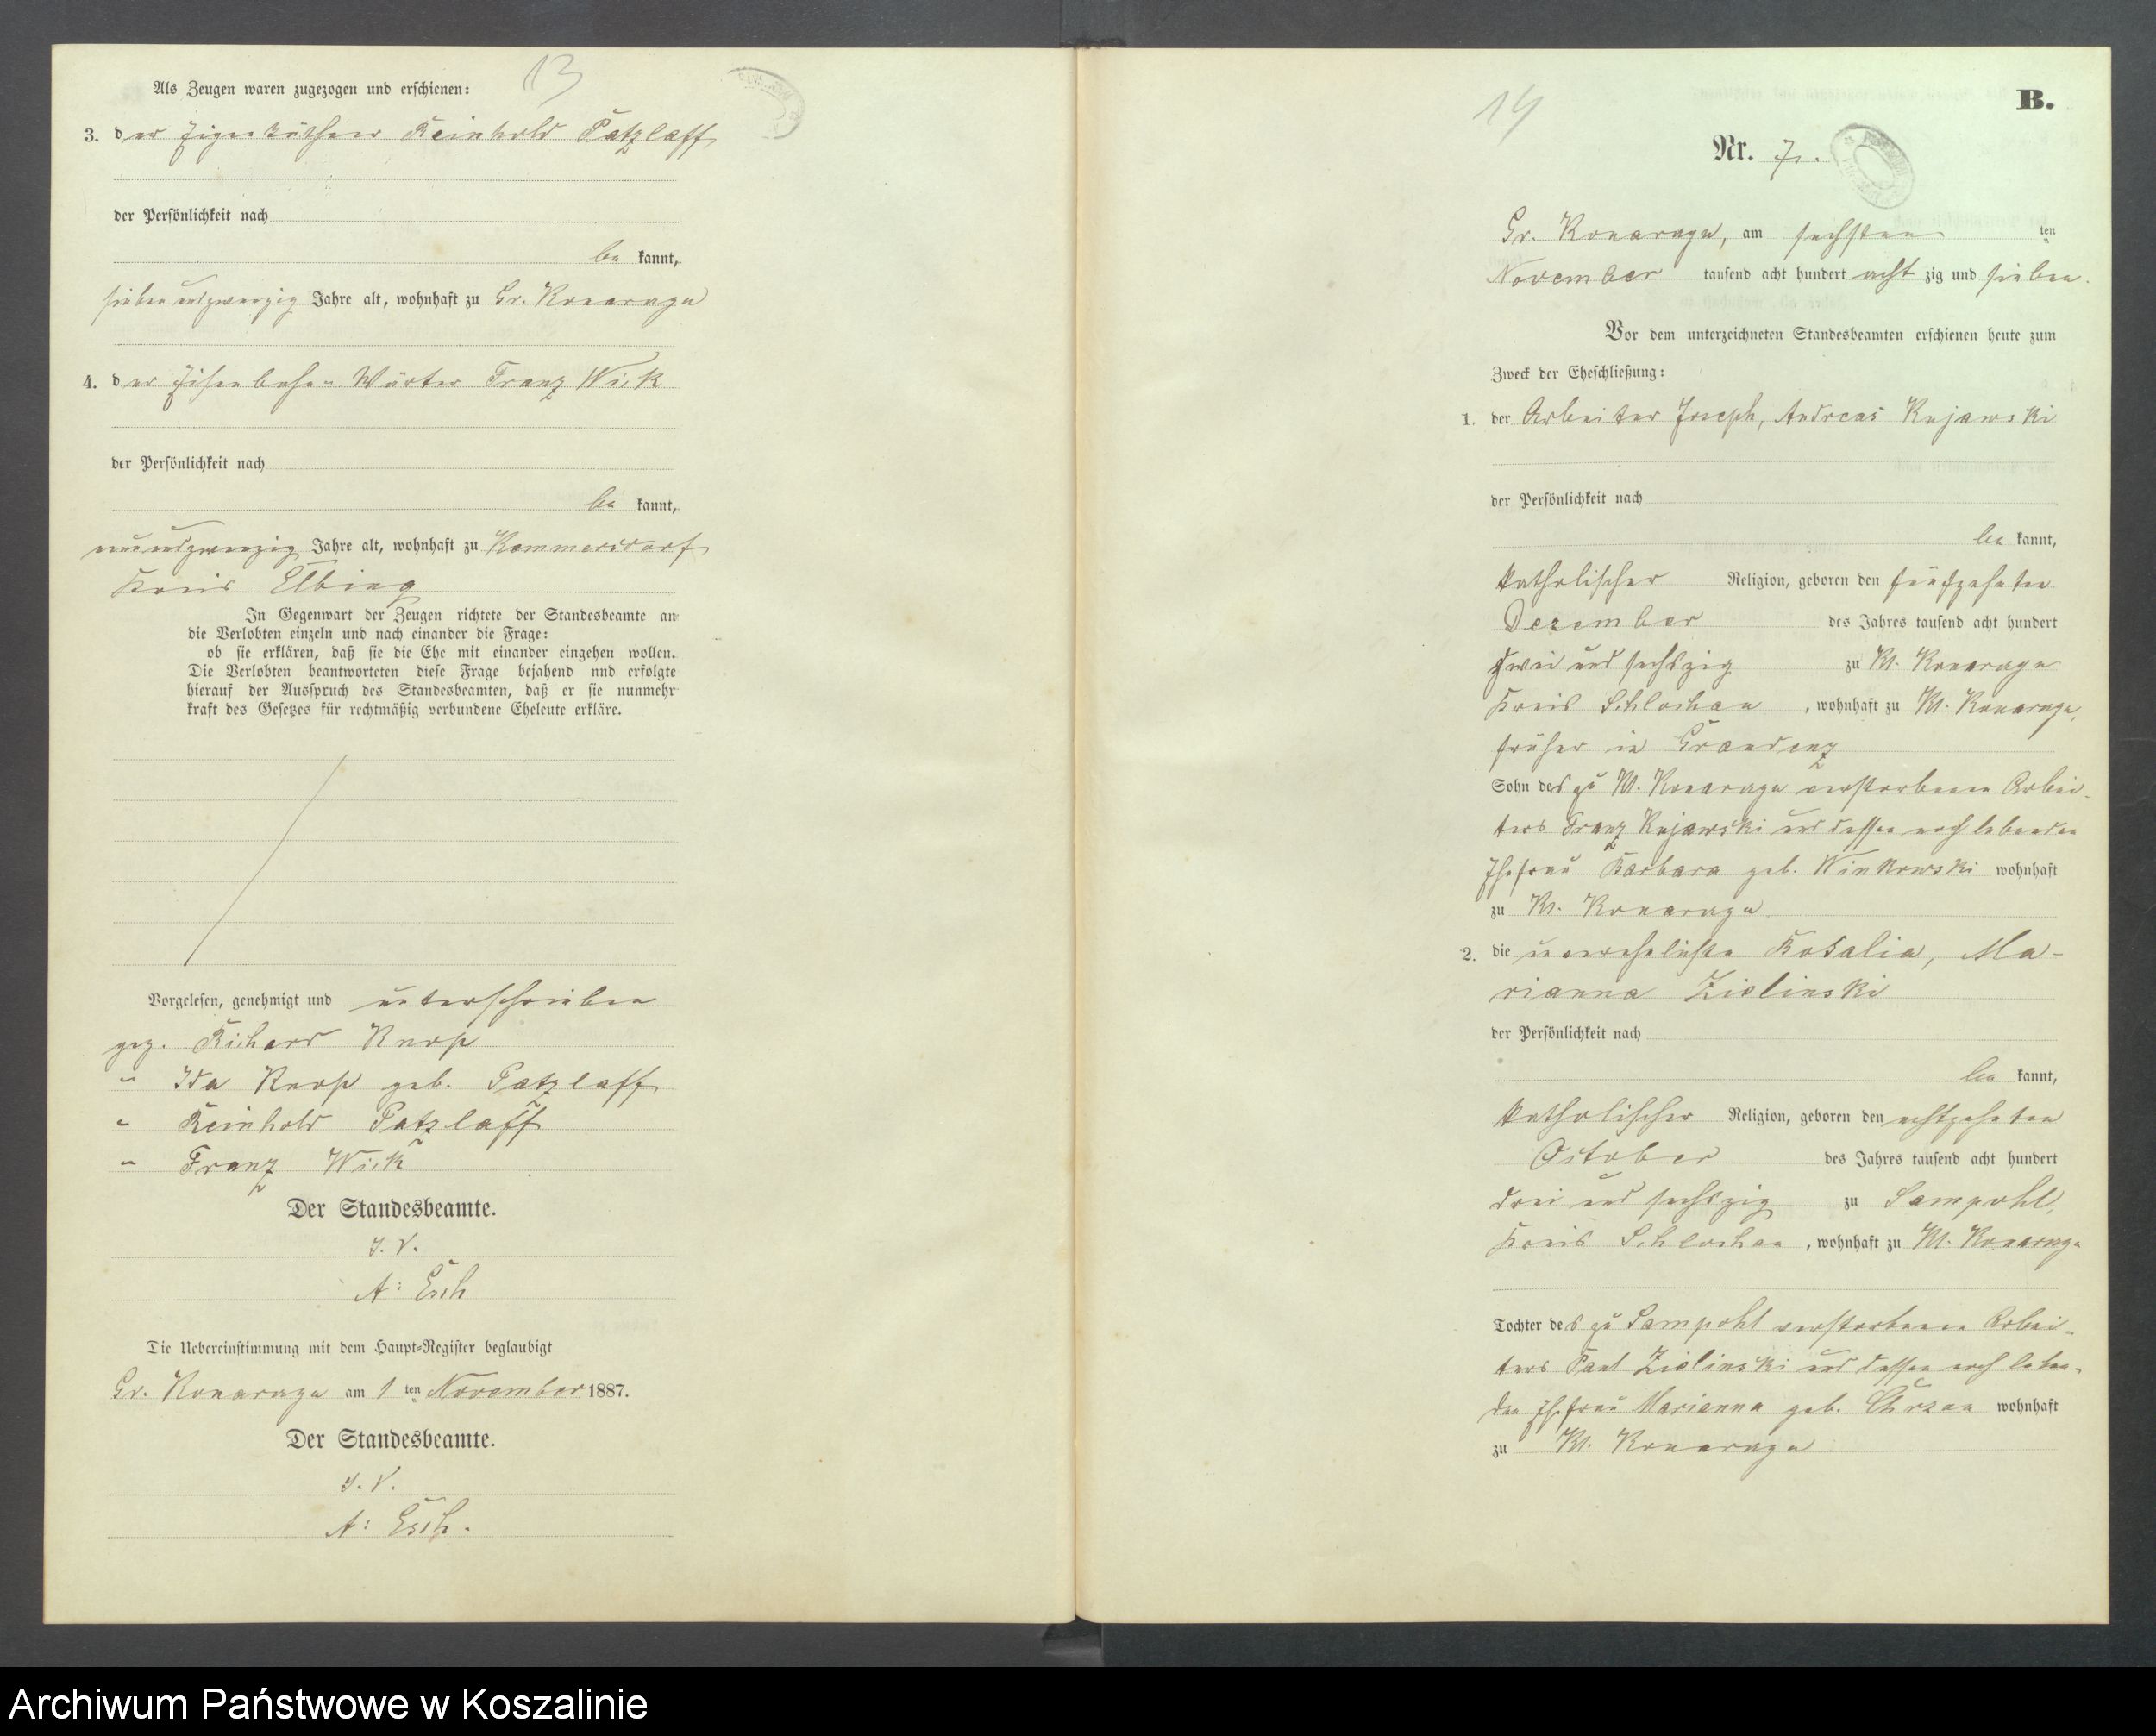 13
Als Zeugen waren zugezogen und erschienen:
3. der Eigenthümer Reinhold Patzlaff
der Persönlichkeit nach
be kannt,
siebenundzwanzig Jahre alt, wohnhaft zu Gr. Konarzyn
4. der Eisenbahn Wärter Franz Wick
der Persönlichkeit nach
be kannt,
Jahre alt, wohnhaft zu Kammersdorf
Kreis Elbing
In Gegenwart der Zeugen richtete der Standesbeamte an
die Verlobten einzeln und nach einander die Frage:
ob sie erklären, daß sie die Ehe mit einander eingehen wollen.
Die Verlobten beantworteten diese Frage bejahend nnd erfolgte
hierauf der Ausspruch des Standesbeamten, daß er sie nunmehr
kraft des Gesetzes für rechtmäßig verbundene Eheleute erkläre.
Vorgelesen, genehmigt und unterschrieben
gez. Richard Knop
" Ida Knop geb. Patzlaff
" Reinhold Patzlaff
" Franz Wick
Der Standesbeamte.
I. V.
A: Esch
Die Uebereinstimmung mit dem Haupt-Register beglaubigt
Gr. Konarzyn am 1 ten November 1887.
Der Standesbeamte.
I. V.
A: Esch.
14
B.
Nr. 7.
Gr. Konarzyn, am sechsten ten
November tausend acht hundert acht zig und sieben.
Vor dem unterzeichneten Standesbeamten erschienen heute zum
Zweck der Eheschließung:
1. der Arbeiter Joseph, Andreas Kujawski
der Persönlichkeit nach
be kannt,
katholischer Religion, geboren den fünfzehnten
Dezember des Jahres tausend acht hundert
zwei und sechszig zu Kl. Konarzyn
Kreis Schlochau, wohnhaft zu Kl. Konarzyn,
früher in Graudenz
Sohn des zu Kl. Konarzyn verstorbenen Arbei-
ters Franz Kujawski und dessen noch lebenden
Ehefrau Barbara geb. Winkowski wohnhaft
zu Kl. Konarzyn
2. die unverehelichte Rosalia, Ma-
rianna Zielinski
der Persönlichkeit nach
be kannt,
katholischer Religion, geboren den achtzehnten
October des Jahres tausend acht hundert
drei und sechszig zu Sampohl,
Kreis Schlochau, wohnhaft zu Kl. Konarzyn
Tochter des zu Sampohl verstorbenen Arbei-
ters Paul Zielinski und dessen noch leben-
den Ehefrau Marianna geb. wohnhaft
zu Kl. Konarzyn
Archiwum Państwowe w Koszalinie